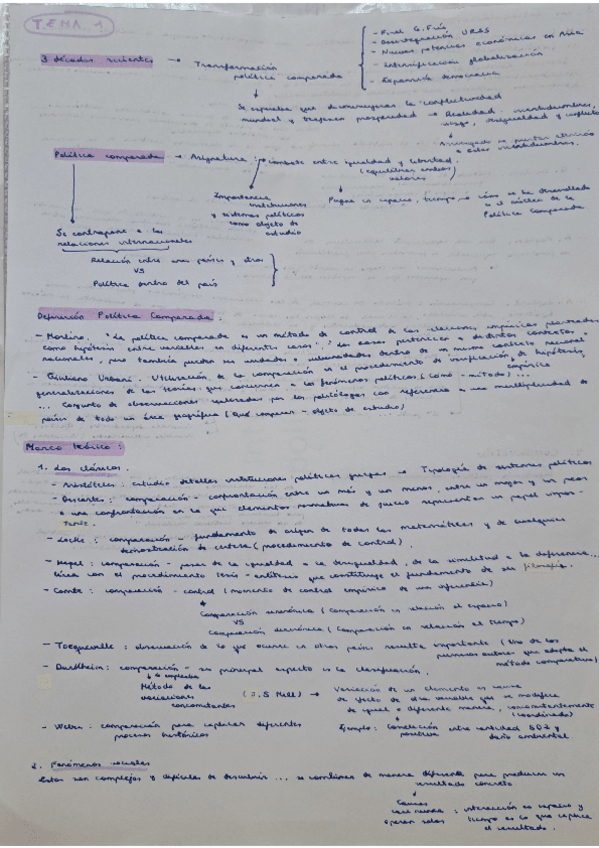 TEMA 1.
3 décadas recientes → Transformación política comparada
- Final G. Fría
- Desintegración URSS
- Nuevas potencias económicas en Asia
- Intensificación globalización
- Expansión democracia
Se esperaba que disminuyera la conflictividad
mundial y trajera prosperidad → Realidad: incertidumbre,
riesgo, desigualdad y
a estas incertidumbres.
Política comparada → Asignatura: combate entre igualdad y libertad.
(equilibrar ambos valores)
Importancia
instituciones
y sistemas políticos
como objeto de
estudio
espacio, tiempo cómo se ha desarrollado
el núcleo de la
Política Comparada.
Se contrapone a las
relaciones internacionales
Relación entre unos países y otros
VS
Política dentro del país
Definición Política Comparada:
- Morlino. "La política comparada es un método de control de las
como hipótesis entre variables en diferentes casos". "Los casos pertenecen a distintos contextos
nacionales, pero también pueden ser unidades o subunidades dentro de un mismo contexto nacional"
- Giuliano Urbani. Utilización de la comparación es el procedimiento de verificación de hipótesis,
empírica
generalizaciones de las teorías que conciernen a los fenómenos políticos (cómo - método) ...
... Conjunto de observaciones realizadas por los politólogos con referencia a una multiplicidad de
países de todo un área geográfica (Qué comparar - objeto de estudio)
Marco teórico:
1. Los clásicos.
- Aristóteles: estudio detalles instituciones políticas griegas → Tipología de sistemas políticos
- Descartes: comparación - confrontación entre un más y un menos, entre un mejor y un peor
o una confrontación en la que elementos normativos de juicio representan un papel importante.
- Locke: comparación - fundamento de origen de todas las matemáticas y de cualquier
demostración de certeza (procedimiento de control).
- Hegel: comparación - pasar de la igualdad a la desigualdad, de la similitud a la diferencia...
línea con el procedimiento tesis - antítesis que constituye el fundamento de su filosofía.
- Comte: comparación - control (momento de control empírico de una
Comparación sincrónica (comparación en relación al espacio)
VS
Comparación diacrónica (comparación en relación al tiempo)
- Tocqueville: observación de lo que ocurre en otros países resulta importante (Uno de los
primeros autores que adopta el
método comparativo)
- Durkheim: comparación - su principal aspecto es la clasificación.
Método de las
variaciones
concomitantes
(J.S Mill) → Variación de un elemento es
de efecto de otra variable que se modifica
de igual o diferente manera, concomitantemente
(coordinada)
- Weber: comparación para explicar diferentes
procesos históricos
Ejemplo: Correlación entre cantidad SO2 y
positiva daño ambiental
2. Fenómenos sociales
Estos son complejos y difíciles de descubrir ... se combinan de manera diferente para producir un
resultado concreto
Causas
casi nunca
operan solas
: interacción en espacio y
tiempo es lo que explica
el resultado.